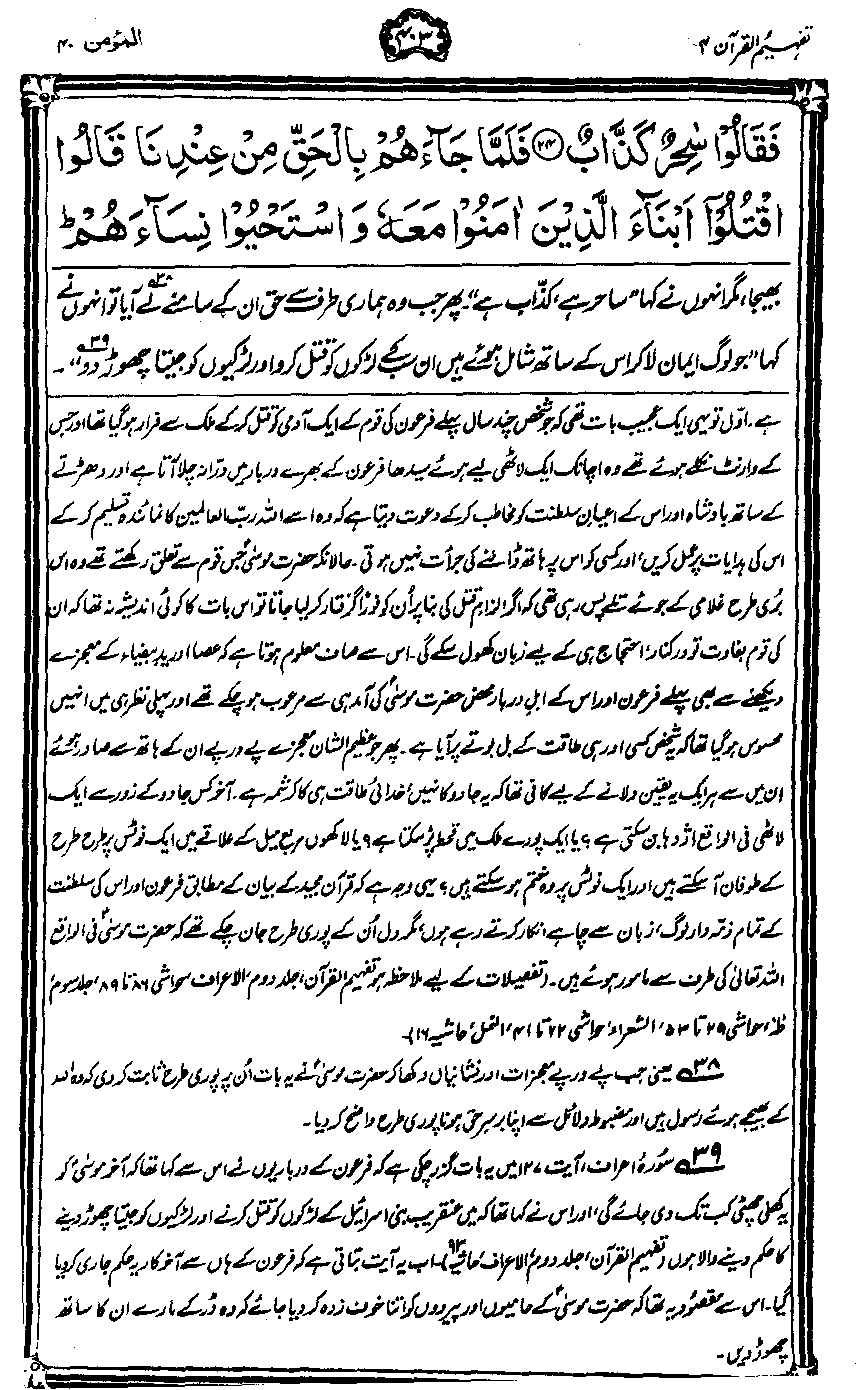 تفہیم القرآن ۴
۴۰۳
المؤمن ۴۰
فَقَالُوْا سٰحِرٌ كَذَّابٌ ﴿۲۴﴾ فَلَمَّا جَآءَهُمْ بِالْحَقِّ مِنْ عِنْدِنَا قَالُوا
اقْتُلُوْۤا اَبْنَآءَ الَّذِيْنَ اٰمَنُوْا مَعَهٗ وَاسْتَحْيُوْا نِسَآءَهُمْ ؕ
بھیجا، مگر انہوں نے کہا ”ساحر ہے، کذّاب ہے“۔ پھر جب وہ ہماری طرف سے حق ان کے سامنے لے آیا۳۸ تو انہوں نے
کہا ”جو لوگ ایمان لا کر اس کے ساتھ شامل ہوئے ہیں ان سب کے لڑکوں کو قتل کرو اور لڑکیوں کو جیتا چھوڑ دو۳۹“۔
ہے۔ اوّل تو یہی ایک عجیب بات تھی کہ جو شخص چند سال پہلے فرعون کی قوم کے ایک آدمی کو قتل کر کے ملک سے فرار ہو گیا تھا اور جس
کے وارنٹ نکلے ہوئے تھے وہ اچانک ایک لاٹھی لیے ہوئے سیدھا فرعون کے بھرے دربار میں درّانہ چلا آتا ہے اور دھڑلّے
کے ساتھ بادشاہ اور اس کے اعیانِ سلطنت کو مخاطب کر کے دعوت دیتا ہے کہ وہ اسے اللہ ربّ العالمین کا نمائندہ تسلیم کر کے
اس کی ہدایات پر عمل کریں، اور کسی کو اس پر ہاتھ ڈالنے کی جرأت نہیں ہوتی۔ حالانکہ حضرت موسیٰؑ جس قوم سے تعلق رکھتے تھے وہ اس
بُری طرح غلامی کے جوئے تلے پس رہی تھی کہ اگر الزامِ قتل کی بنا پر اُن کو فوراً گرفتار کر لیا جاتا تو اس بات کا کوئی اندیشہ نہ تھا کہ ان
کی قوم بغاوت تو درکنار، احتجاج ہی کے لیے زبان کھول سکے گی۔ اس سے صاف معلوم ہوتا ہے کہ عصا اور یدِ بیضاء کے معجزے
دیکھنے سے بھی پہلے فرعون اور اس کے اہلِ دربار محض حضرت موسیٰؑ کی آمد ہی سے مرعوب ہو چکے تھے اور پہلی نظر ہی میں انہیں
محسوس ہو گیا تھا کہ یہ شخص کسی اور ہی طاقت کے بل بوتے پر آیا ہے۔ پھر جو عظیم الشان معجزے پے در پے ان کے ہاتھ سے صادر ہوئے
ان میں سے ہر ایک یہ یقین دلانے کے لیے کافی تھا کہ یہ جادو کا نہیں، خدائی طاقت ہی کا کرشمہ ہے۔ آخر کس جادو کے زور سے ایک
لاٹھی فی الواقع اژدہا بن سکتی ہے؟ یا ایک پورے ملک میں قحط پڑ سکتا ہے؟ یا لاکھوں مربع میل کے علاقے میں ایک نوٹس پر طرح طرح
کے طوفان آ سکتے ہیں اور ایک نوٹس پر وہ ختم ہو سکتے ہیں؟ یہی وجہ ہے کہ قرآن مجید کے بیان کے مطابق فرعون اور اس کی سلطنت
کے تمام ذمّہ دار لوگ، زبان سے چاہے انکار کرتے رہے ہوں، مگر دل اُن کے پوری طرح جان چکے تھے کہ حضرت موسیٰؑ فی الواقع
اللہ تعالیٰ کی طرف سے مامور ہوئے ہیں۔ (تفصیلات کے لیے ملاحظہ ہو تفہیم القرآن، جلد دوم، الاعراف حواشی ۸۶ تا ۸۹، جلد سوم،
طٰہٰ، حواشی ۲۹ تا ۵۳، الشعراء، حواشی ۲۲ تا ۴۱، النمل، حاشیہ ۱۶)۔
۳۸ یعنی جب پے در پے معجزات اور نشانیاں دکھا کر حضرت موسیٰؑ نے یہ بات اُن پر پوری طرح ثابت کر دی کہ وہ اللہ
کے بھیجے ہوئے رسول ہیں اور مضبوط دلائل سے اپنا برسرِ حق ہونا پوری طرح واضح کر دیا۔
۳۹ سورۂ اعراف، آیت ۱۲۷ میں یہ بات گزر چکی ہے کہ فرعون کے درباریوں نے اس سے کہا تھا کہ آخر موسیٰؑ کو
یہ کھلی چھٹی کب تک دی جائے گی، اور اس نے کہا تھا کہ میں عنقریب بنی اسرائیل کے لڑکوں کو قتل کرنے اور لڑکیوں کو جیتا چھوڑ دینے
کا حکم دینے والا ہوں (تفہیم القرآن، جلد دوم، الاعراف، حاشیہ ۹۳)۔ اب یہ آیت بتاتی ہے کہ فرعون کے ہاں سے آخر کار یہ حکم جاری کر دیا
گیا۔ اس سے مقصود یہ تھا کہ حضرت موسیٰؑ کے حامیوں اور پیروؤں کو اتنا خوف زدہ کر دیا جائے کہ وہ ڈر کے مارے ان کا ساتھ
چھوڑ دیں۔